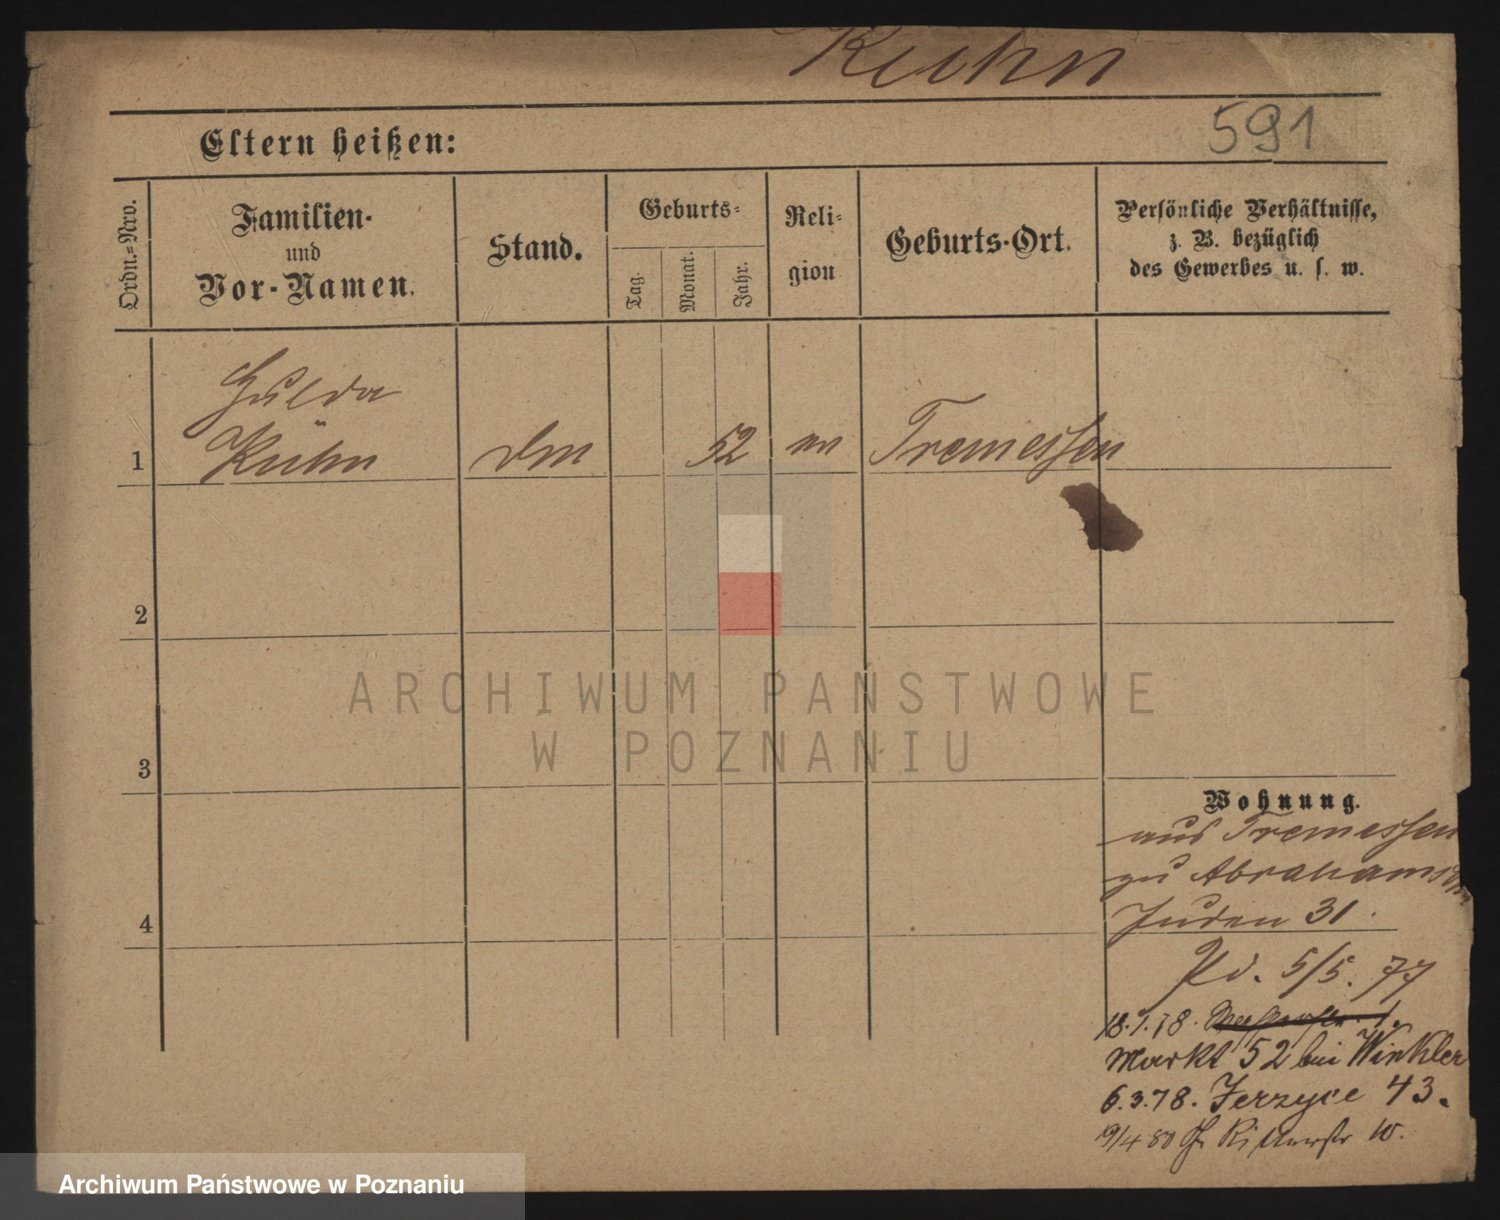 Kühn
591
Eltern heißen:
Ordn.-Nro.
Familien-
und
Vor-Namen.
Stand.
Geburts-
Tag.
Monat.
Jahr.
Reli-
gion
Geburts-Ort.
Persönliche Verhältnisse,
z. B. bezüglich
des Gewerbes u. s. w.
Hulda
1 Kühn 52 Tremessen
2
ARCHIWUM PAŃSTWOWE
W POZNANIU
3
Wohnung.
aus Tremessen
zu Abrahamsohn
Juden 31.
4
5/5. 77
18.1.78.
Markt 52 bei Winkler
6.3.78. Jerzyce 43.
19/4 80 Gr Ritterstr 10.
Archiwum Państwowe w Poznaniu